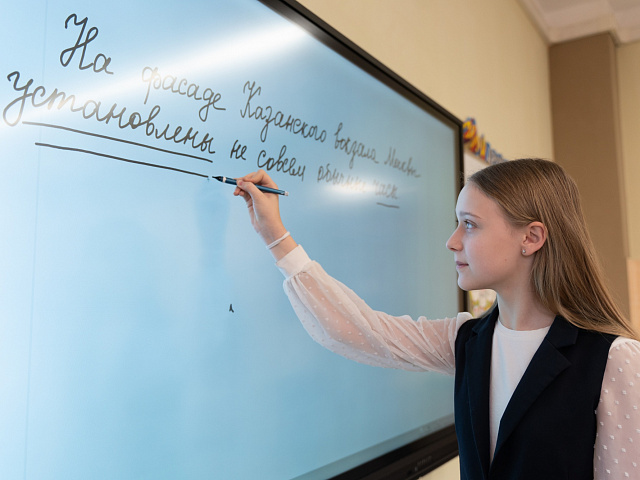 На фасаде Казанского вокзала Москвы
установлены не совсем обычные часы